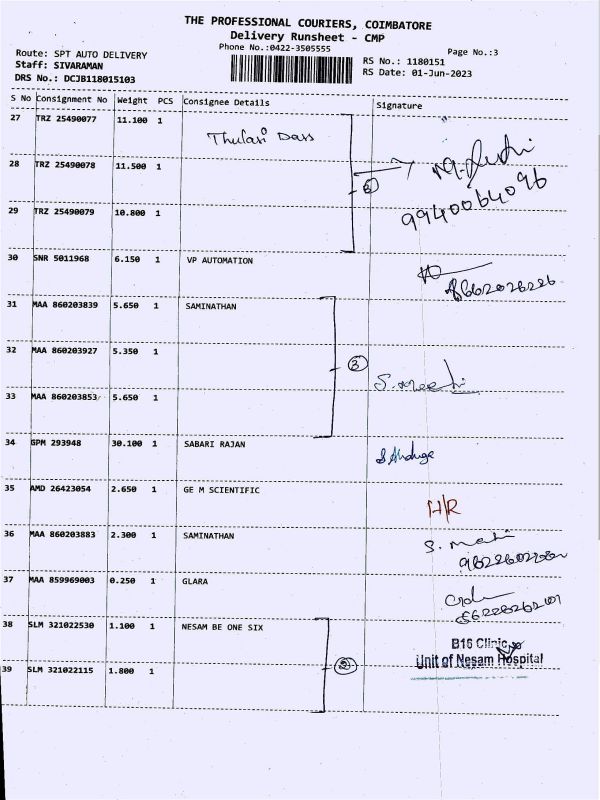 THE PROFESSIONAL COURIERS, COIMBATORE
Delivery Runsheet - CMP
Phone No.:0422-3505555
Page No.:3
Route: SPT AUTO DELIVERY
RS No.: 1180151
Staff: SIVARAMAN
RS Date: 01-Jun-2023
DRS No.: DCJB118015103
S No Consignment No Weight PCS Consignee Details Signature
27 TRZ 25490077 11.100 1 Thulasi Dass
28 TRZ 25490078 11.500 1
9940064096
29 TRZ 25490079 10.800 1
30 SNR 5011968 6.150 1 VP AUTOMATION
31 MAA 860203839 5.650 1 SAMINATHAN
32 MAA 860203927 5.350 1
3
33 MAA 860203853 5.650 1
34 GPM 293948 30.100 1 SABARI RAJAN
35 AMD 26423054 2.650 1 GE M SCIENTIFIC
H/R
36 MAA 860203883 2.300 1 SAMINATHAN
37 MAA 859969003 0.250 1 GLARA
38 SLM 321022530 1.100 1 NESAM BE ONE SIX
B16 Clinic
Unit of Nesam Hospital
39 SLM 321022115 1.800 1